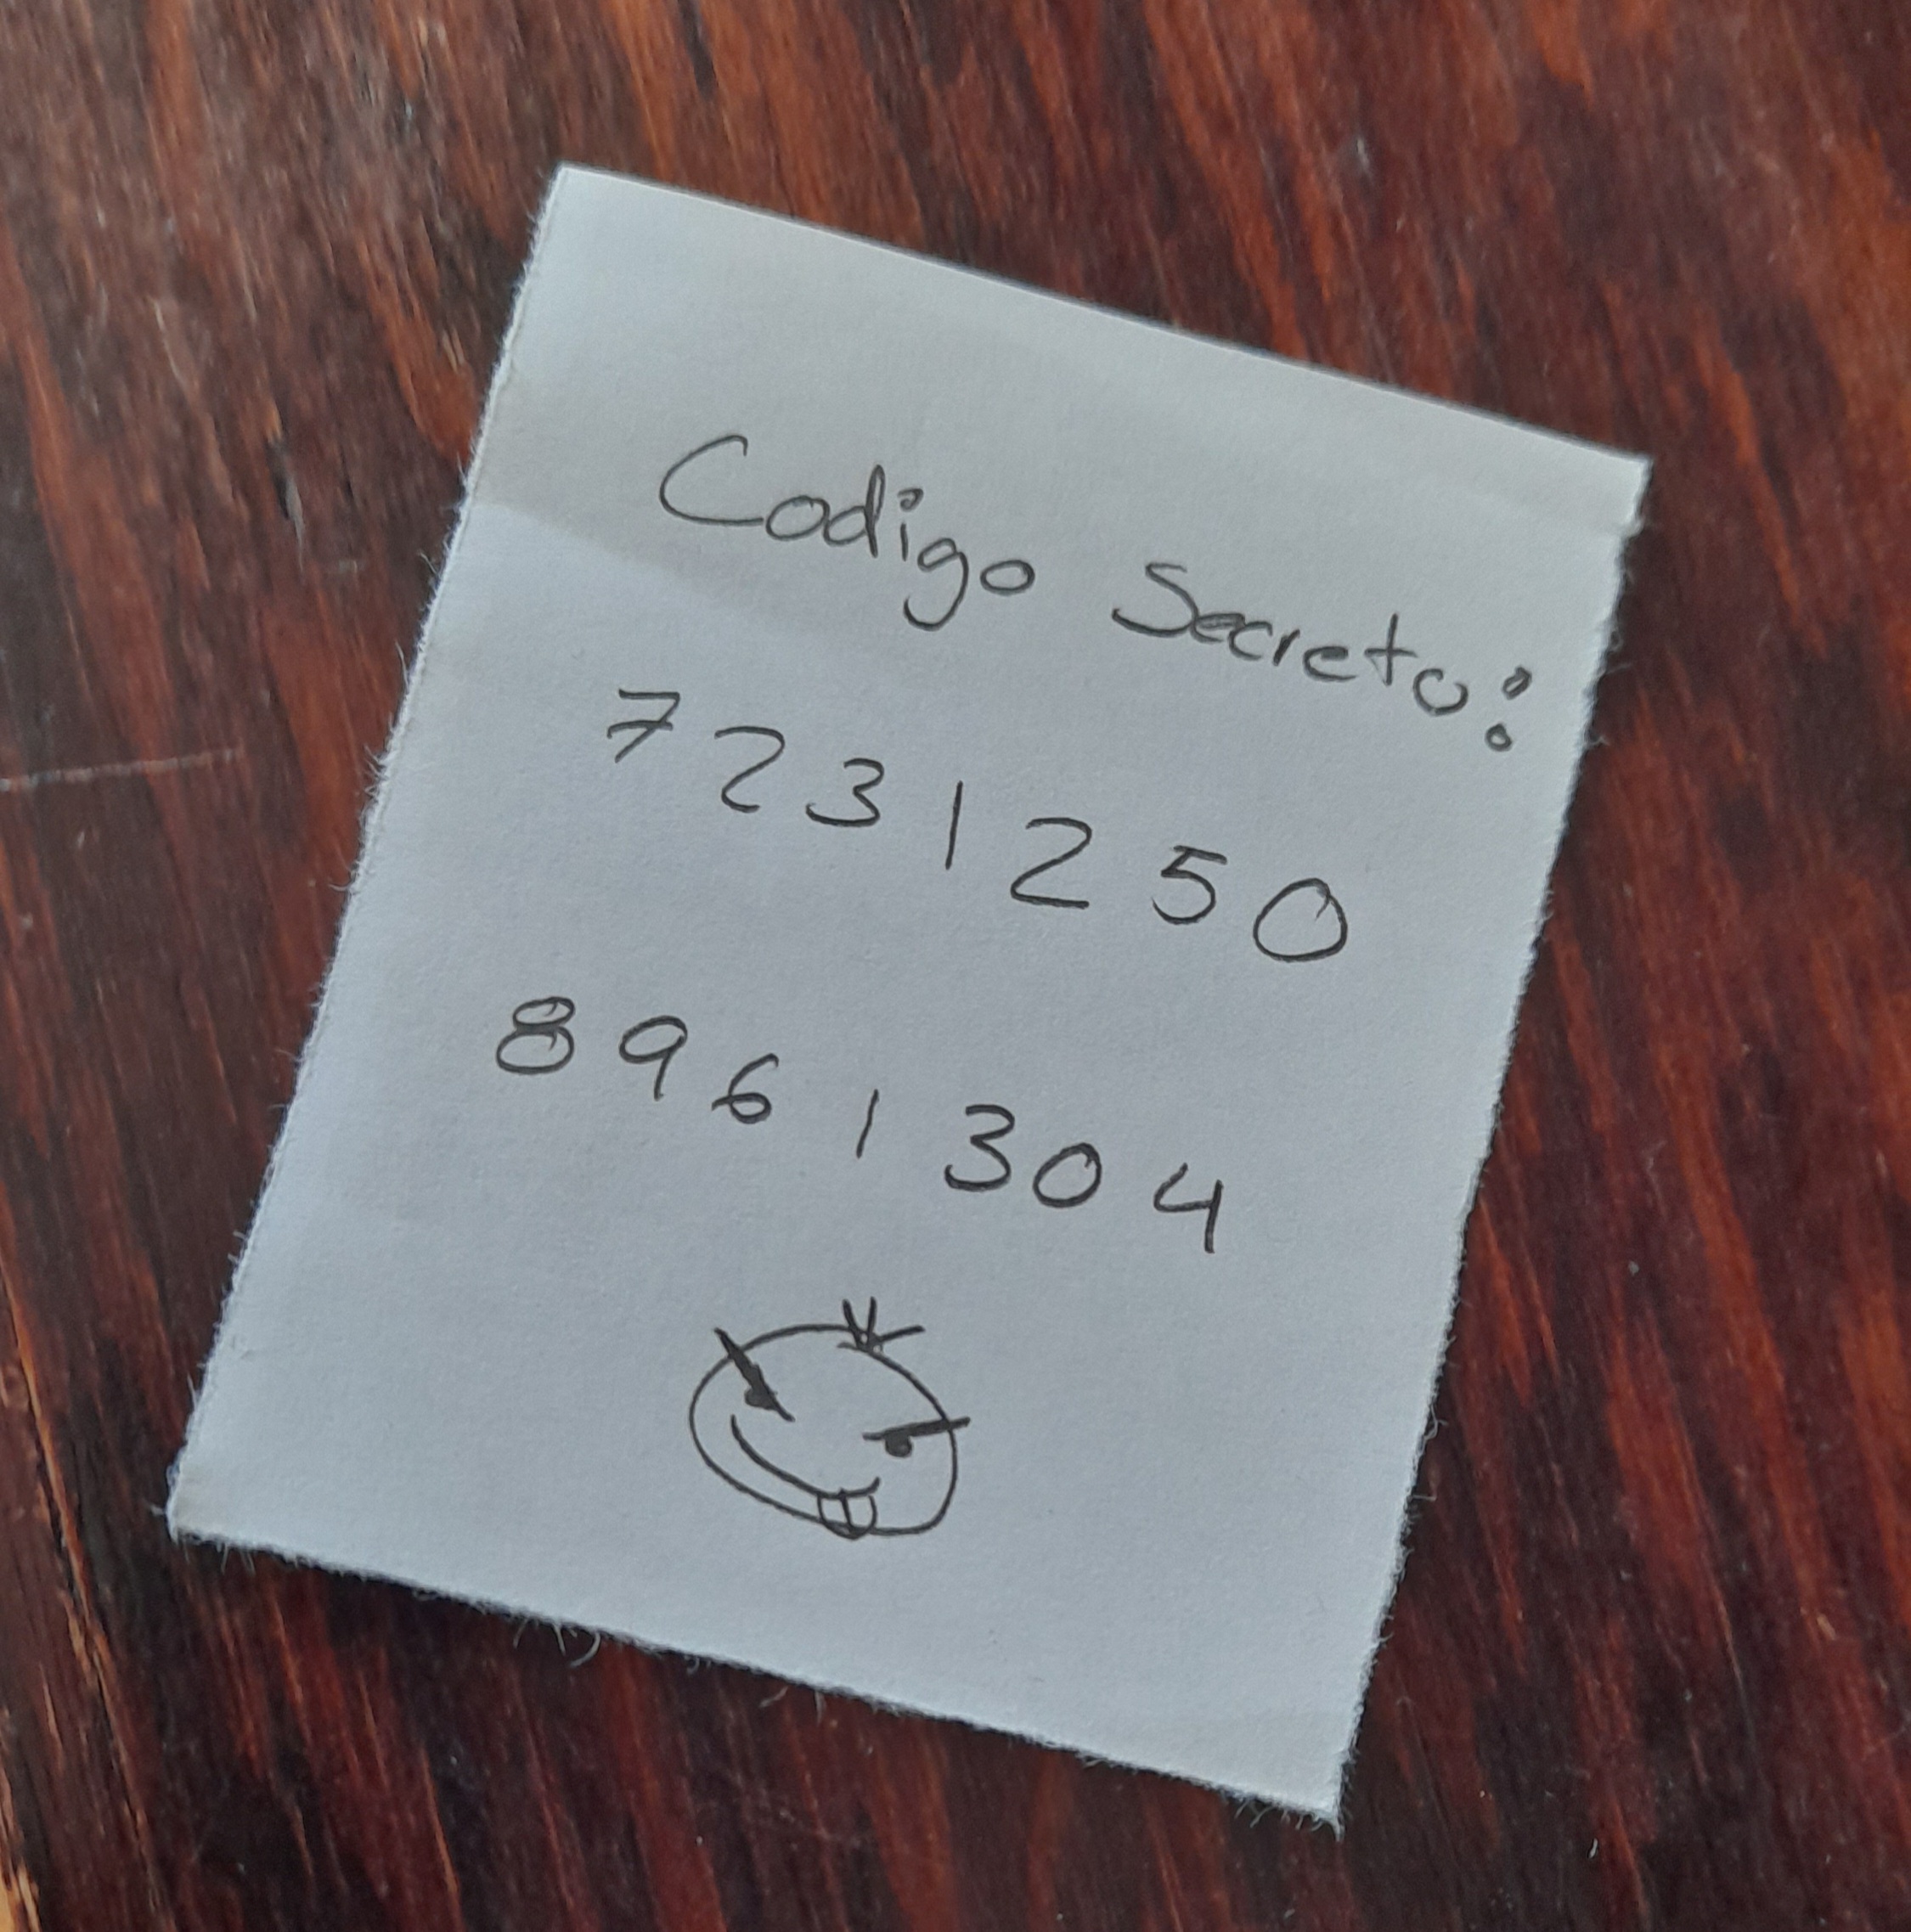 Codigo Secreto:
7231250
8961304